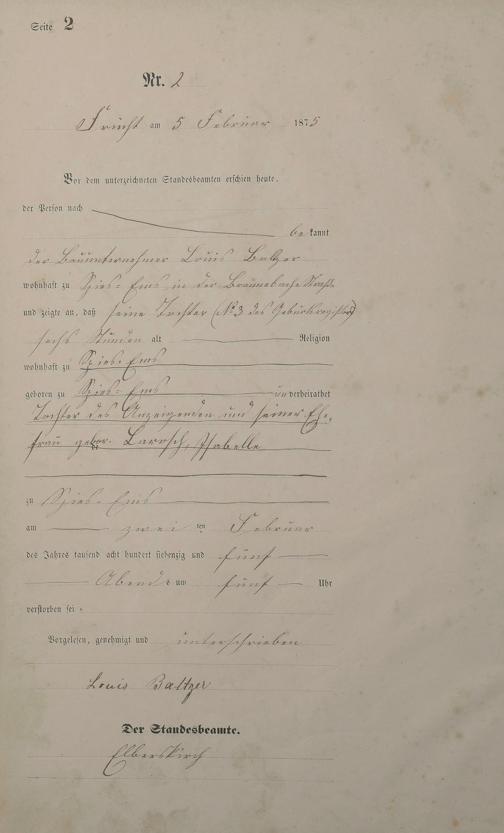 Seite 2
Nr. 2
Frücht am 5 Februar 1875
Vor dem unterzeichneten Standesbeamten erschien heute,
der Person nach
bekannt
der Bauunternehmer Louis Balzer
wohnhaft zu Spies-Ems in der Braunebacher Straße
und zeigte an, daß seine Tochter (No 3 des Geburtsregisters)
sechs Stunden alt Religion
wohnhaft zu Spies-Ems
geboren zu Spies-Ems unverheirathet
Tochter des Anzeigenden und seiner Ehe-
frau gebor. Isabelle
zu Spies-Ems
am zwei ten Februar
des Jahres tausend acht hundert siebenzig und fünf
Abends um fünf Uhr
verstorben sei.
Vorgelesen, genehmigt und unterschrieben
Louis Baltzer
Der Standesbeamte.
Elberskirch